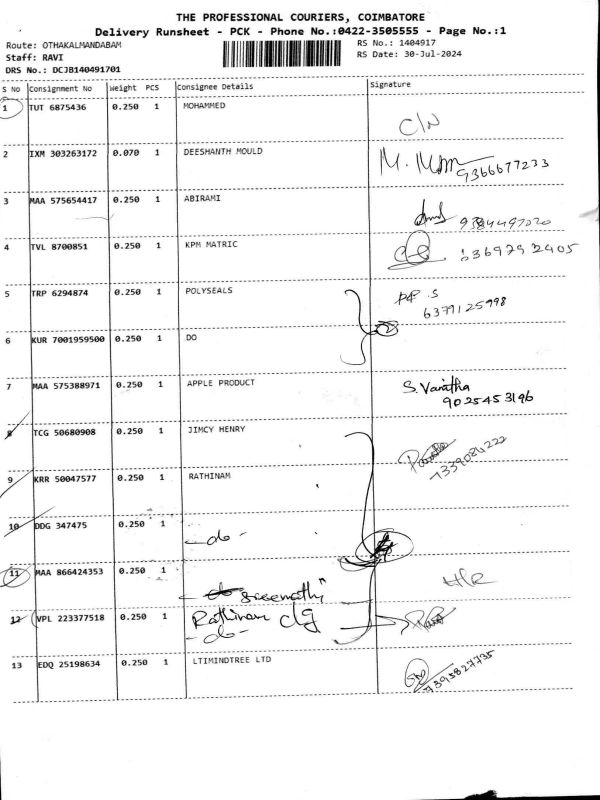 THE PROFESSIONAL COURIERS, COIMBATORE
Delivery Runsheet - PCK - Phone No.:0422-3505555 - Page No.:1
Route: OTHAKALMANDABAM
RS No.: 1404917
Staff: RAVI
RS Date: 30-Jul-2024
DRS No.: DCJB140491701
S No Consignment No Weight PCS Consignee Details Signature
1 TUT 6875436 0.250 1 MOHAMMED
C/N
2 IXM 303263172 0.070 1 DEESHANTH MOULD
9366677233
3 MAA 575654417 0.250 1 ABIRAMI
4 TVL 8700851 0.250 1 KPM MATRIC
5 TRP 6294874 0.250 1 POLYSEALS
6379125998
6 KUR 7001959500 0.250 1 DO
7 MAA 575388971 0.250 1 APPLE PRODUCT
S. Varitha
9025453196
8 TCG 50680908 0.250 1 JIMCY HENRY
7339084222
9 KRR 50047577 0.250 1 RATHINAM
10 DDG 347475 0.250 1
-do-
11 MAA 866424353 0.250 1
Sreemathy
12 VPL 223377518 0.250 1 Rathinam clg
-do-
13 EDQ 25198634 0.250 1 LTIMINDTREE LTD
7395827735